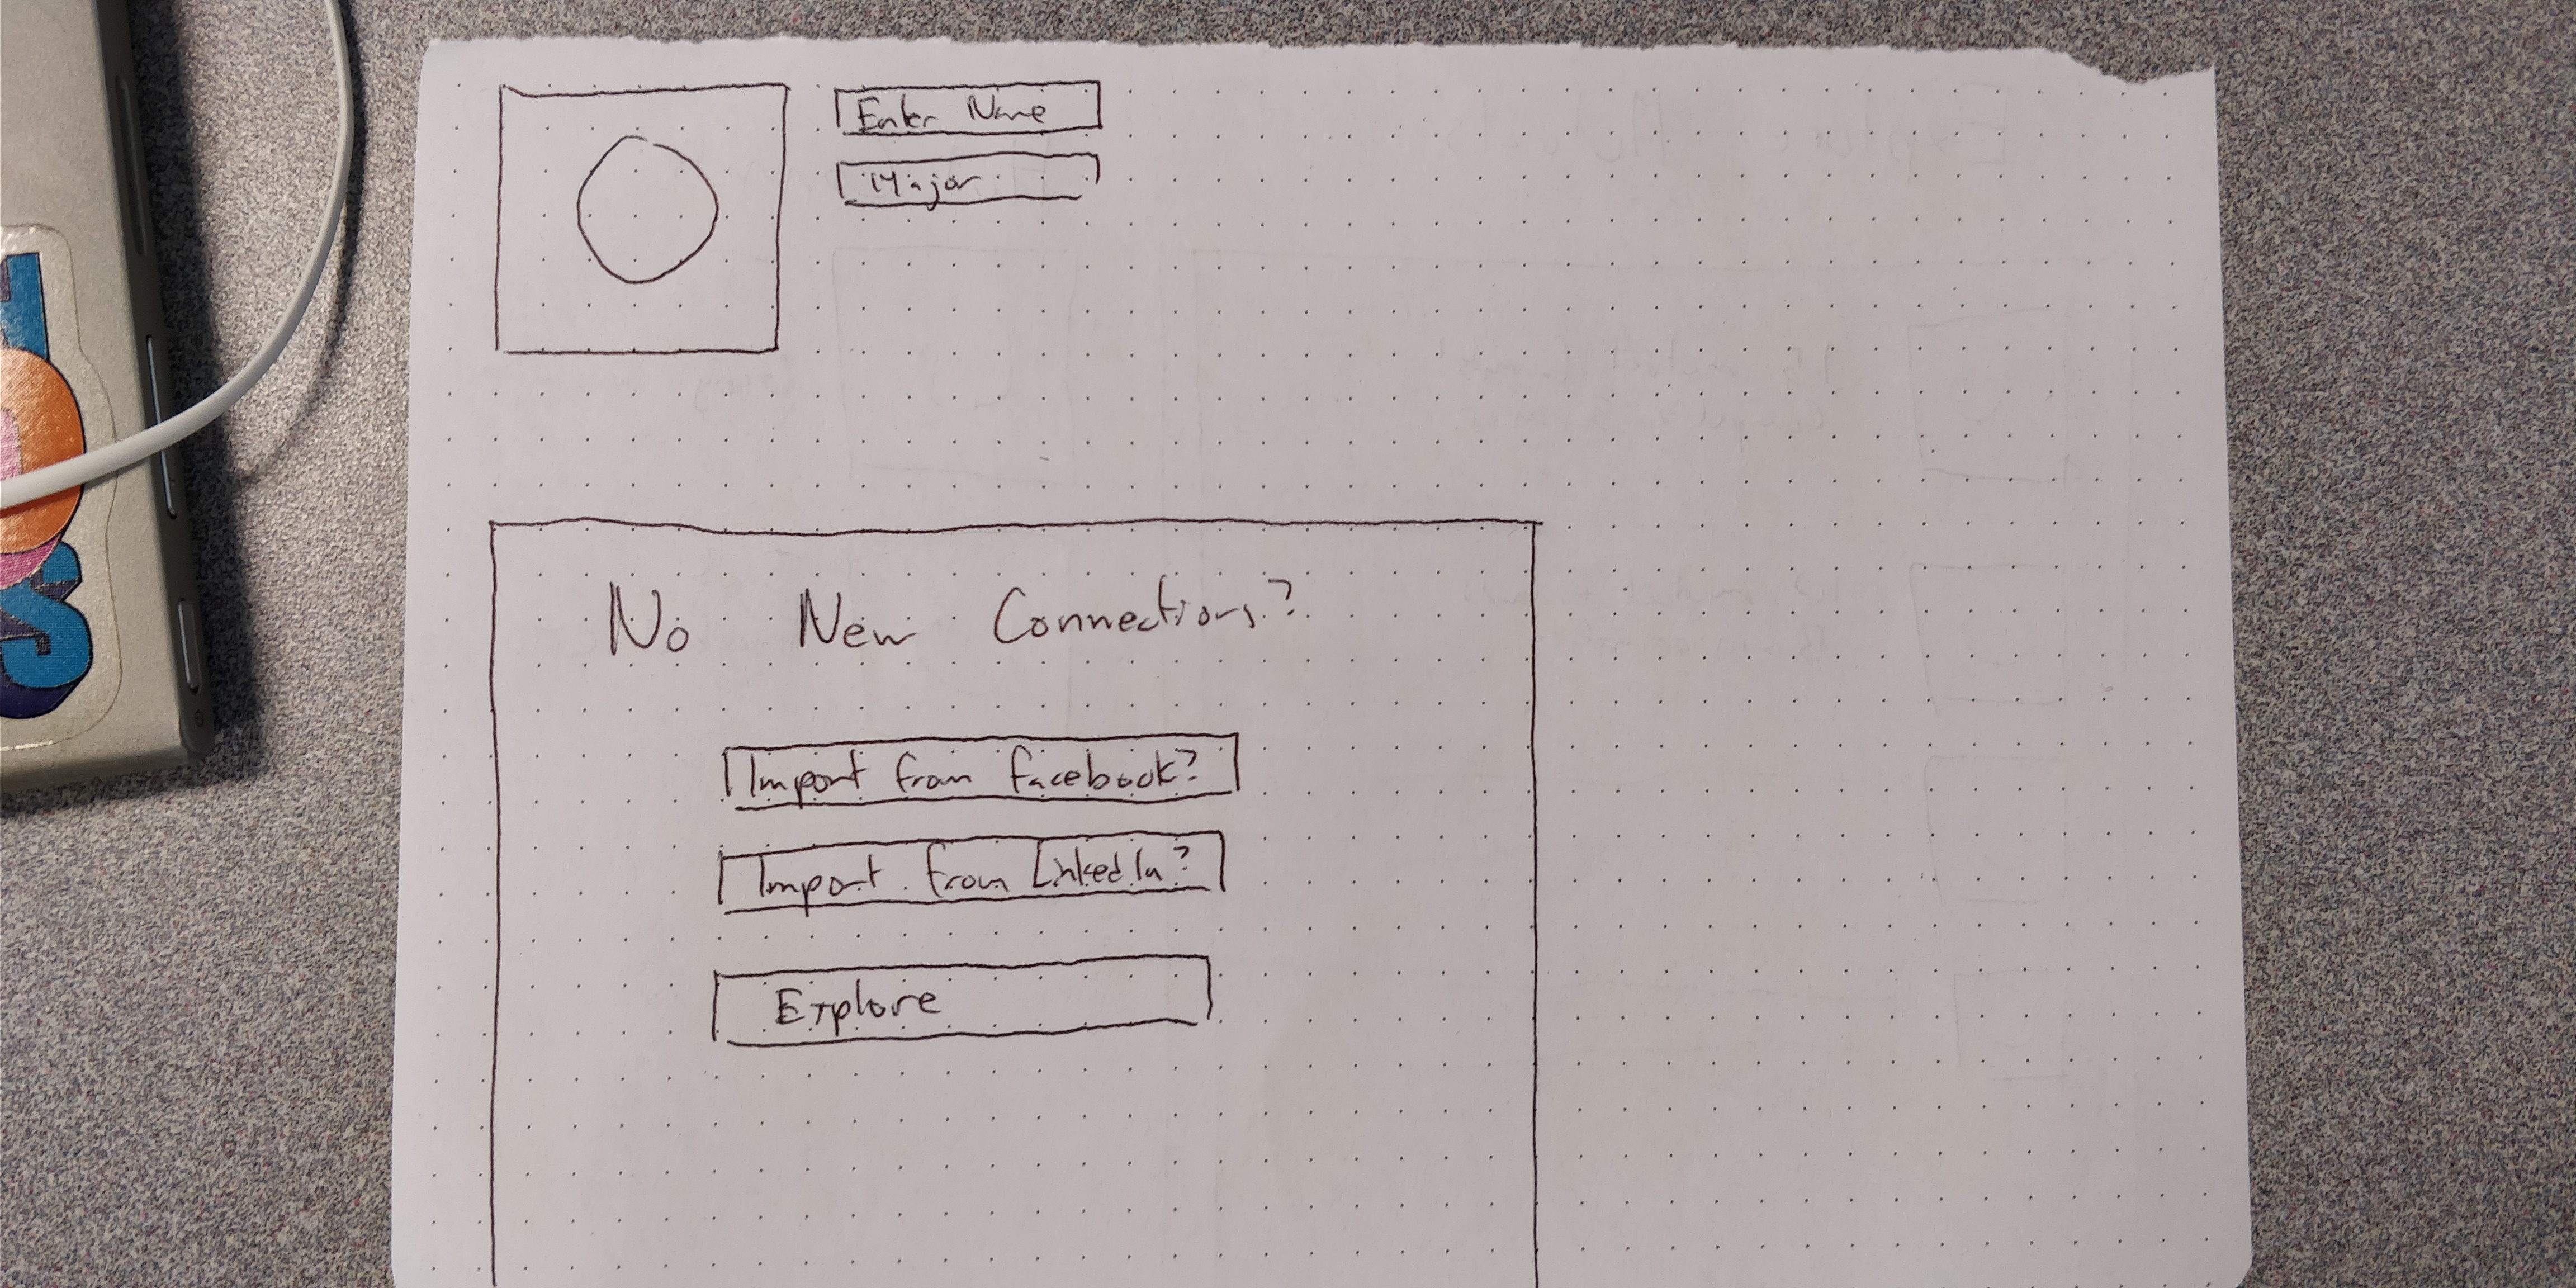 Enter Name
Major
No New Connections?
Import from Facebook?
Import from LinkedIn?
Explore